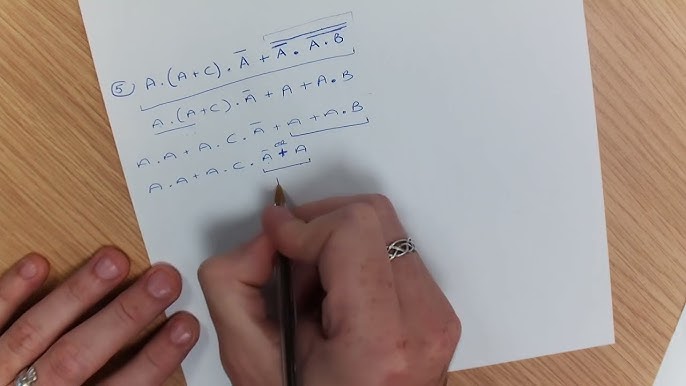 ⑤ A.(A+C).Ā + \overline{\overline{Ā . \overline{A.B}}}
A.(A+C).Ā + A + A.B
A.A + A.C.Ā + A + A.B
A.A + A.C.Ā + A